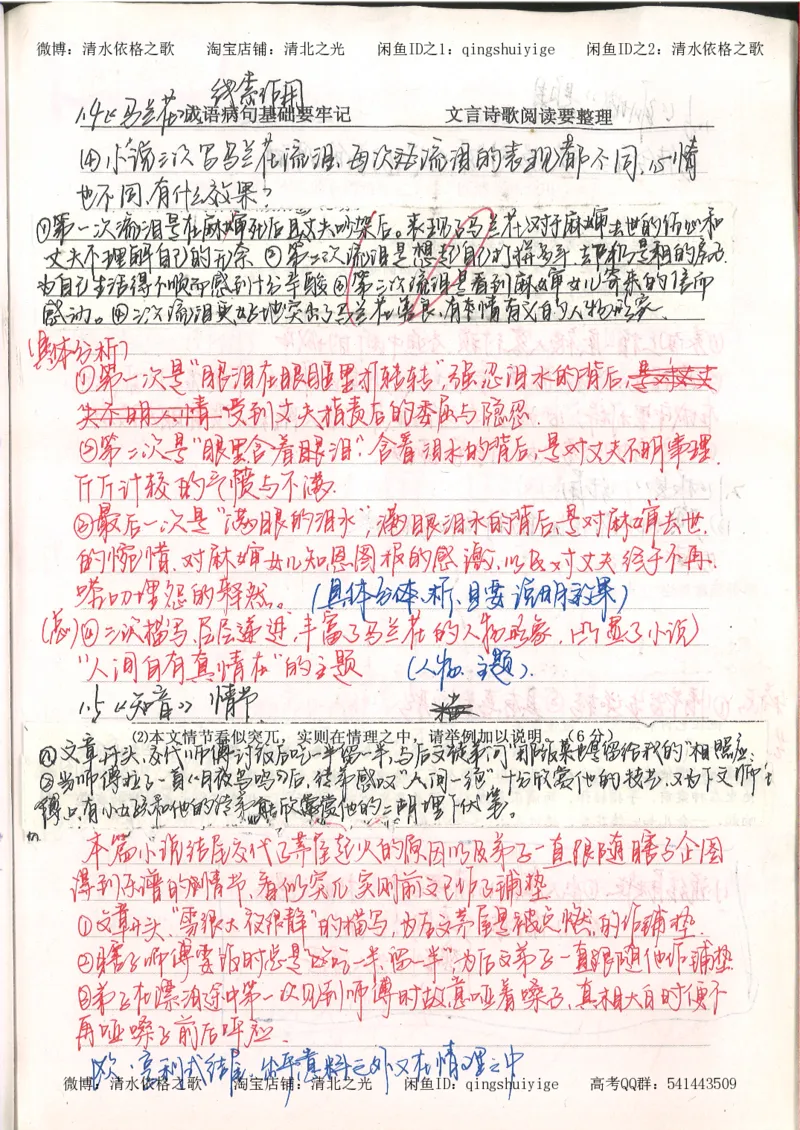 微博：清水依格之歌 淘宝店铺：清北之光 闲鱼ID之1：qingshuiyige 闲鱼ID之2：清水依格之歌
线索作用
1.4《马兰花》成语病句基础要牢记 文言诗歌阅读要整理
(4)小说三次写马兰花流泪，每次流泪的表现都不同，心情
也不同，有什么效果？
①第一次流泪是在麻婶死后且丈夫吵架后。表现了马兰花对于麻婶去世的伤心和
丈夫不理解自己的无奈 ②第二次流泪是想起自己的拼
为自己生活得不顺而感到十分辛酸③第三次流泪是看到麻婶女儿寄来的信而
感动。④三次流泪更好地突出了马兰花善良，有情有义的人物形象。
(具体分析)
①第一次是“眼泪在眼眶里打转转”，强忍泪水的背后，是对丈
夫不明人情 受到丈夫指责后的委屈与隐忍.
②第二次是“眼里含着眼泪”.含着泪水的背后，是对丈夫不明事理.
斤斤计较的气愤与不满.
③最后一次是“满眼的泪水”，满眼泪水的背后，是对麻婶去世
的惋惜.对麻婶女儿知恩图报的感激，以及对丈夫终于不再
唠叨埋怨的释然。 (具体分析、且要说明效果)
(总)④三次描写，层层递进，丰富了马兰花的人物形象，凸显了小说
“人间自有真情在”的主题 (人物、主题).
1.5《知音》 情节
(2)本文情节看似突兀，实则在情理之中，请举例加以说明。(6分)
①文章开头，交代师傅讨饭后吃一半留一半，与后文徒弟问“那饭菜也是留给我的”相照应;
②当师傅拉了一首《月夜鸟鸣》后，徒弟感叹“人间一绝”十分欣赏他的技艺，又为下文师
傅只有小女孩和他的徒弟欣赏他的二胡埋下伏笔。
本篇小说结尾交代了茅屋起火的原因以及弟子一直跟随瞎子企图
得到乐谱的情节，看似突兀，实则前文已作了铺垫
①文章开头“雪很大夜很静”的描写，为后文茅屋是被点燃的作铺垫.
②瞎子师傅要饭时总是“吃一半，留一半”，为后文弟子一直跟随他作铺垫
③弟子在漂泊途中第一次见到师傅时故意哑着嗓子，真相大白时便不
再哑嗓子前后呼应.
欧·亨利式结尾，出乎意料之外又在情理之中
微博：清水依格之歌 淘宝店铺：清北之光 闲鱼ID：qingshuiyige 高考QQ群：541443509